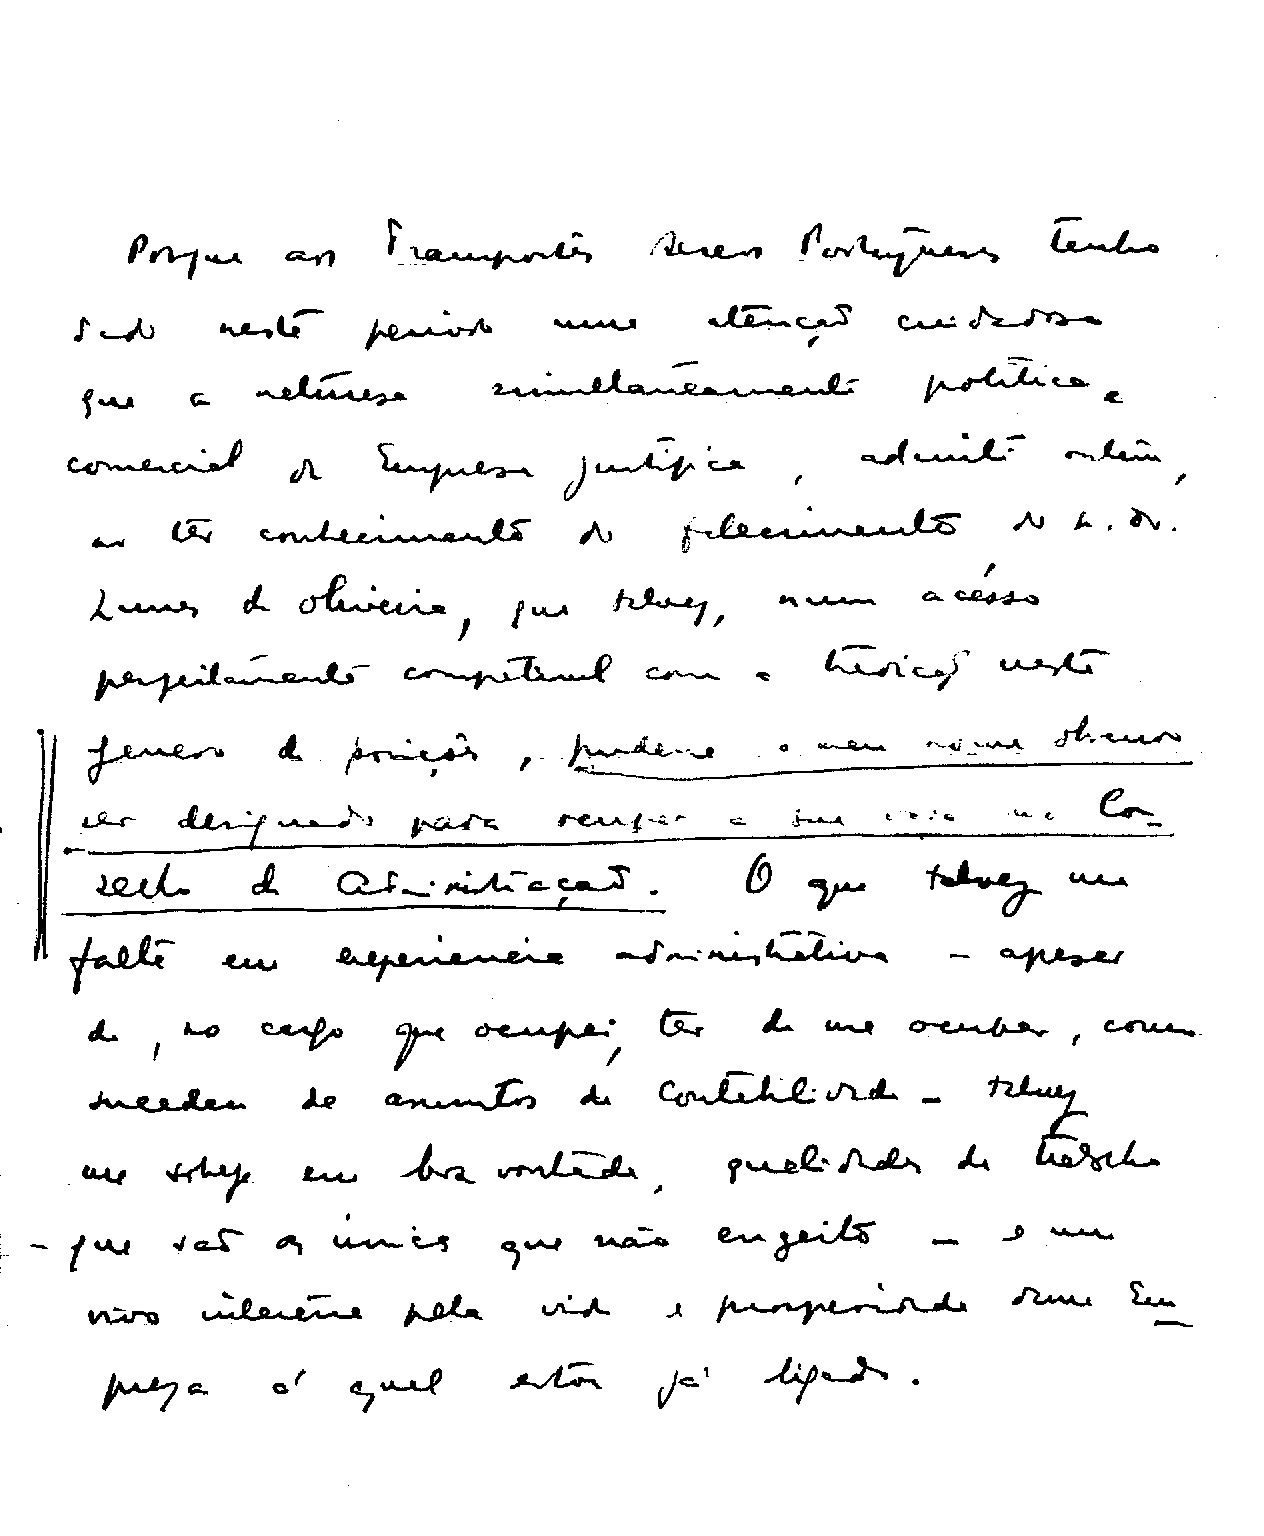 Porque aos Transportes Aereos Portugueses tenho
dado neste periodo uma atenção cuidadosa
que a naturesa simultaneamente politica e
comercial da Empresa justifica, admiti ontem,
ao ter conhecimento do falecimento do S. Dr.
Nunes de Oliveira, que talvez, num acésso
perfeitamente compativel com a tradição neste
genero de posições, pudesse o meu nome obscuro
ser designado para ocupar a sua vaga no Con-
selho de Administração. O que talvez me
falte em experiencia administrativa - apesar
de, no cargo que ocupei, ter de me ocupar, como
sucedeu de assuntos de contabilidade - talvez
me sobeje em boa vontade, qualidades de trabalho
- que são as únicas que não engeito - e um
vivo interesse pela vida e prosperidade duma Em-
preza á qual estou já ligado.